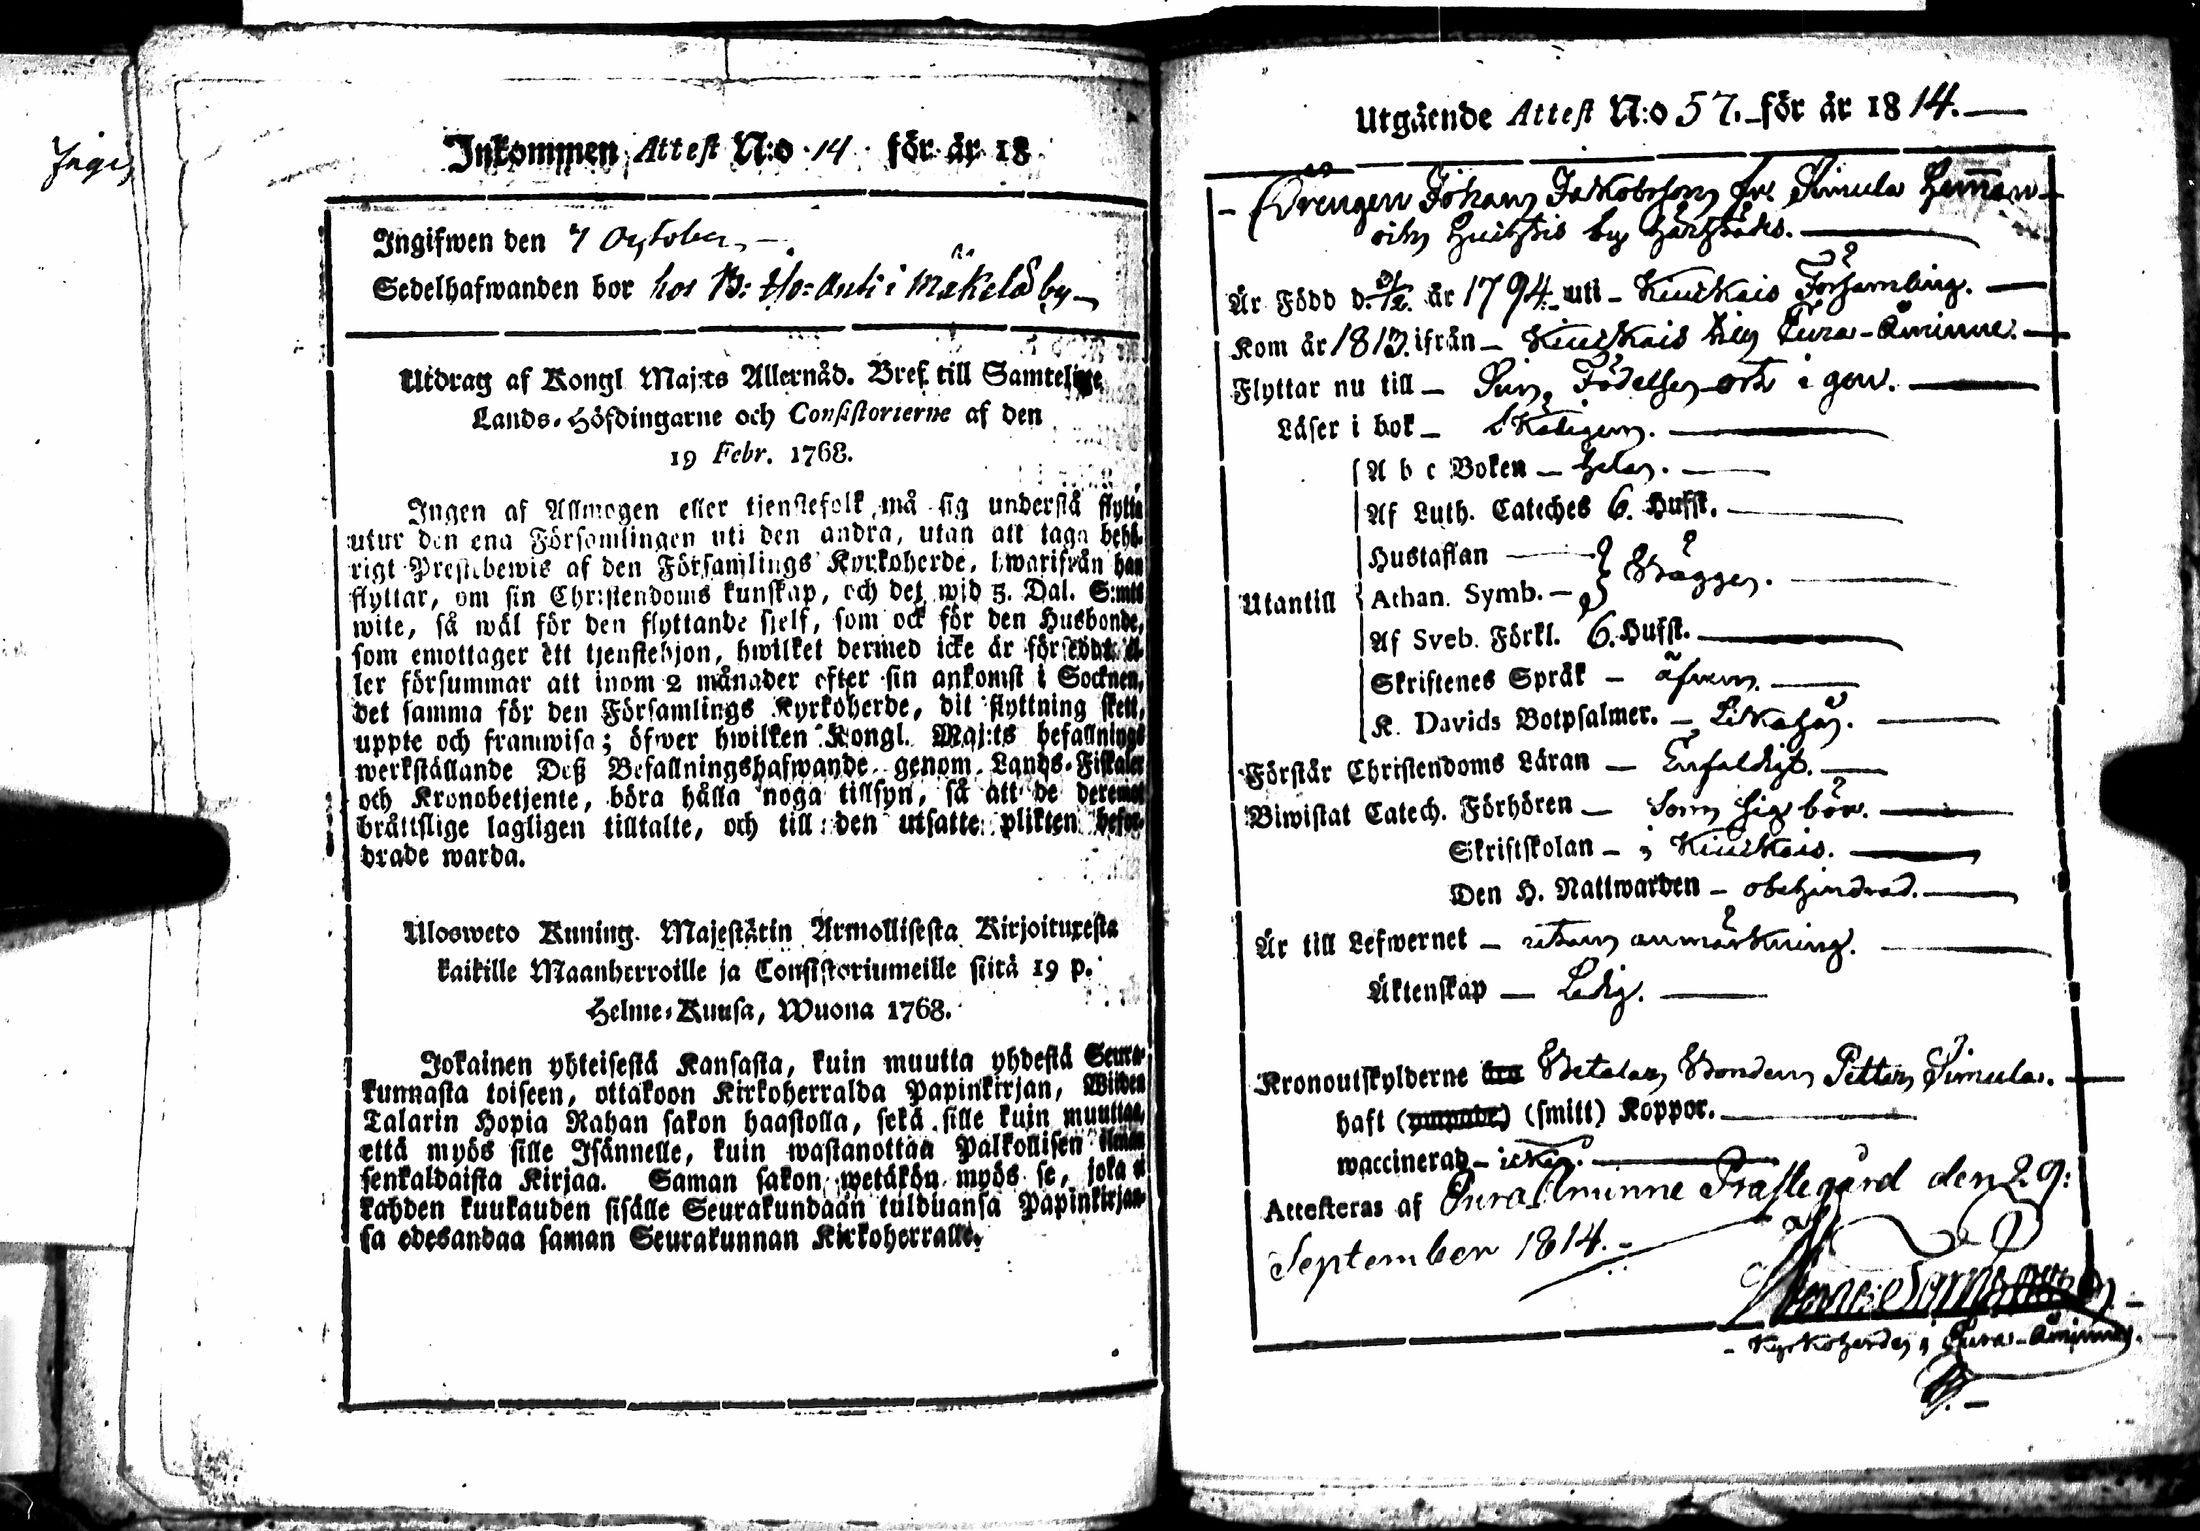 Inkommen Attest N:o 14 för år 18
Ingifwen den 7 October
Sedelhafwanden bor hos i Mäkelä by
Utdrag af Kongl Maj:ts Allernåd. Bref till Samtelige
Lands-Höfdingarne och Consistorierne af den
19 Febr. 1768.
Ingen af Allmogen eller tjenstefolk må sig understå flytta
utur den ena Församlingen uti den andra, utan att taga behö-
rigt Prestebewis af den Församlings Kyrkoherde, hwarifrån han
flyttar, om sin Christendoms kunskap, och det wid 5. Dal. S:mts
wite, så wäl för den flyttande sjelf, som ock för den Husbonde,
som emottager ett tjenstehjon, hwilket dermed icke är försedt, el-
ler försummar att inom 2 månader efter sin ankomst i Socknen,
det samma för den Församlings Kyrkoherde, dit flyttning skett,
uppte och framwisa; öfwer hwilken Kongl. Maj:ts befallnings
werkställande Deß Befallningshafwande genom Lands-Fiskaler
och Kronobetjente, böra hålla noga tillsyn, så att de deremot
bråttslige lagligen tilltalte, och till den utsatte plikten befor-
drade warda.
Ulosweto Kuning. Majestätin Armollisesta Kirjoituxesta
kaikille Maanherroille ja Consistoriumeille siitä 19 p.
Helme-Kuusa, Wuona 1768.
Jokainen yhteisestä Kansasta, kuin muutta yhdestä Seura-
kunnasta toiseen, ottakoon Kirkoherralda Papinkirjan, Wiiden
Talarin Hopia Rahan sakon haastolla, sekä sille kuin muuttaa,
että myös sille Isännelle, kuin wastanottaa Palkollisen ilman
senkaldaista Kirjaa. Saman sakon wetäkön myös se, joka ei
kahden kuukauden sisälle Seurakundaan tulduansa Papinkirjaa-
sa edesandaa saman Seurakunnan Kirkoherralle.
Utgående Attest N:o 57. för år 1814.
Drengen Johan Jakobsson fr. Simula Hemman
och by härstädes.
Är Född d. år 1794 uti Kiukais Församling.
Kom år 1813 ifrån Kiukais til Eura-Åminne.
Flyttar nu till Sin Födelse ort igen.
Läser i bok Skäligen.
A b c Boken hela.
Af Luth. Catechés 6. Hufst.
Hustaflan
Utantill Athan. Symb. Bägge.
Af Sveb. Förkl. 6. Hufst.
Skriftenes Språk äfven.
K. Davids Botpsalmer. Likaså.
Förstår Christendoms Läran Enfaldigt.
Biwistat Catech. Förhören som sig bör.
Skriftskolan i Kiukais.
Den H. Nattwarden obehindrad.
Är till Lefwernet utan anmärkning.
Äktenskap Ledig.
Kronoutskylderne Betalar Bonden Petter Simula.
haft (smitt) Koppor.
waccinerad icke.
Attesteras af Eura Åminne Prästegård den 29:
September 1814.
Kyrkoherde i Eura-Åminne.